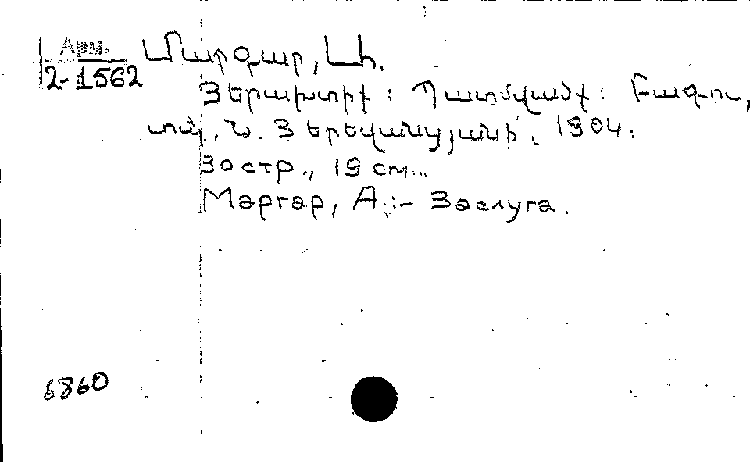 Арм.
2-1562
Մարգար, Ա.
Յերախտիք: Պատմվածք: Բագու,
տպ. Ն. Յերեվանցյանի, 1904.
30 стр., 19 см.
Маргар, А.:- Заслуга.
6860